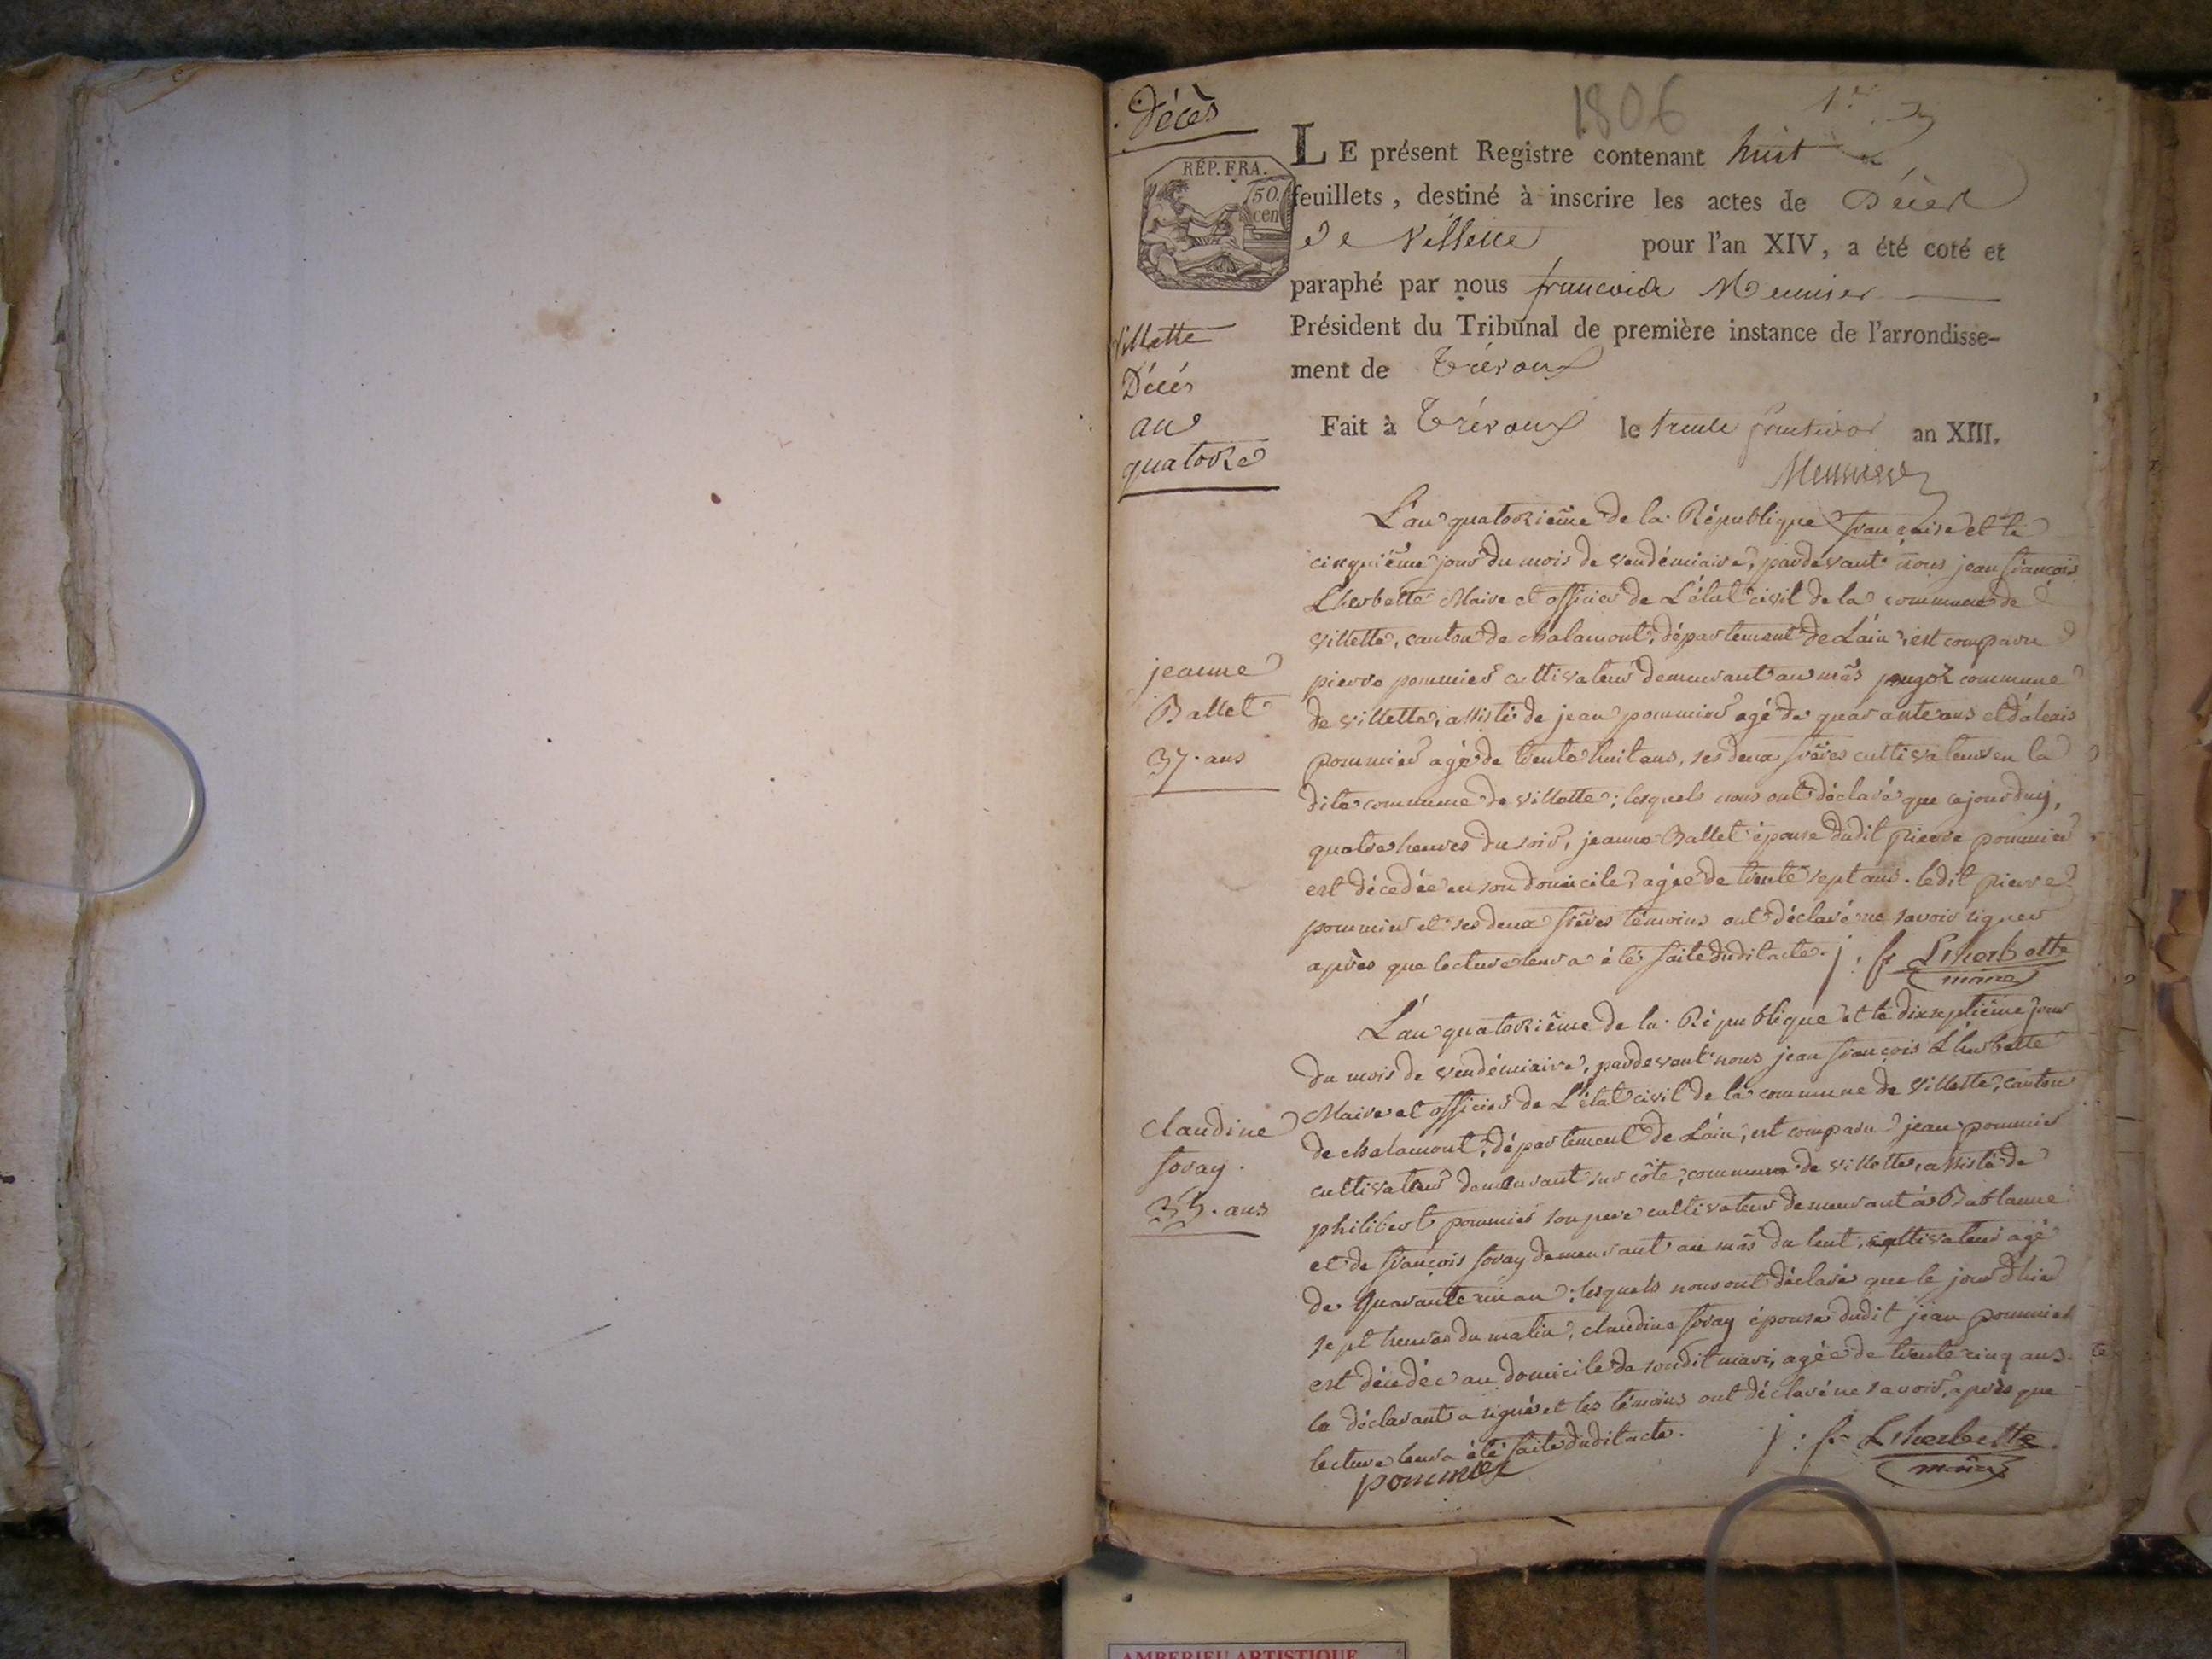 Décès
1806
1er
RÉP. FRA.
50.
cen
LE présent Registre contenant huit
feuillets, destiné à inscrire les actes de Décès
de Villette pour l'an XIV, a été coté et
paraphé par nous francois Meunier
Président du Tribunal de première instance de l'arrondisse-
ment de Trévoux
Fait à Trévoux le trente fructidor an XIII.
Villette
Décés
an
quatorze
L'an quatorzième de la République française et le
cinquième jour du mois de vendémiaire, pardevant nous jean françois
Lherbette Maire et officier de L'état civil de la commune de
villette, canton de chalamont, département de L'ain, est comparu
pierre pommier cultivateur demeurant au mâs commune
de villette, assisté de jean pommier agé de quarante ans et d'alexis
pommier agé de trente huit ans, ses deux frères cultivateurs en la
dite commune de villette; lesquels nous ont déclaré que cejourduy,
quatre heures du soir, jeanne Ballet épouse dudit Pierre pommier
est décedée en son domicile, agée de trente sept ans. ledit pierre
pommier et ses deux frères témoins ont déclaré ne savoir signer
après que lecture leur a été faite dudit acte. j : fr Lherbette
maire
jeanne
Ballet
37. ans
L'an quatorzième de la République et le dixseptième jour
du mois de vendémiaire, pardevant nous jean françois Lherbette
Maire et officier de L'état civil de la commune de villette, canton
de chalamont, département de L'ain, est comparu jean pommier
cultivateur demeurant sur côte, commune de villette, assisté de
philibert pommier son pere cultivateur demeurant à Bublanne
et de françois foray demeurant au mâs du lent, cultivateur agé
de quarante un an; lesquels nous ont déclaré que le jour d'hier
sept heures du matin, claudine foray épouse dudit jean pommier
est décedée au domicile de sondit mari, agée de trente cinq ans.
le déclarant a signé et les témoins ont déclaré ne savoir, après que
lecture leur a été faite dudit acte. j : fr Lherbette
maire
pommier
claudine
foray.
35. ans
AMBERIEU ARTISTIQUE